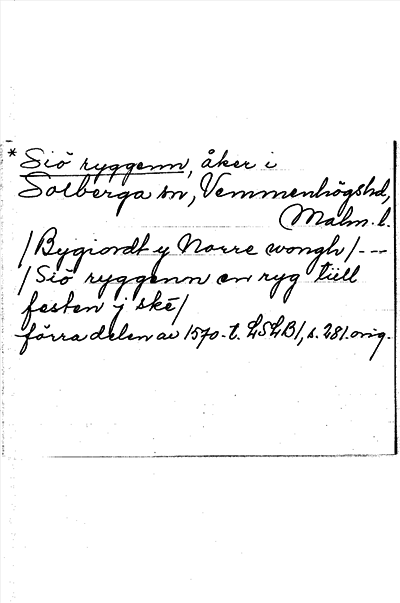 * Siö ryggenn, åker i
Solberga sn, Vemmenhögshd,
Malm. l.
/Bygiordt y Norre wongh/---
/Siö ryggenn en ryg tiill
festen j skē/
förra delen av 1570-t. LSLB1, s. 281. orig.